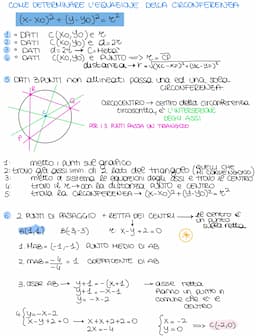 COME DETERMINARE L'EQUAZIONE DELLA CIRCONFERENZA
(x-xo)²+(y-yo)²=r²
1 = DATI C(xo,yo) e r
2 = DATI C(xo,yo) e d=2r
3 = DATI d=2r → C=Metà
4 = DATI C(xo,yo) e PUNTO ⟹ r = CP
distanza → r = √(xc-xo)²+(yc-yo)²
5 DATI 3 PUNTI non allineati passa una ed una sola CIRCONFERENZA
CIRCOCENTRO → centro della circonferenza circoscritta, è L'INTERSEZIONE DEGLI ASSI
PER I 3 PUNTI PASSA UN TRIANGOLO
1: metto i punti sul grafico
2: trovo gli assi di 2 lati del triangolo (quelli che mi convengono)
3: metto a sistema le equazioni degli assi e trovo il CENTRO
4: trovo il r → con la distanza PUNTO e CENTRO
5: trovo la CIRCONFERENZA → (x-xo)²+(y-yo)²=r²
6 2 PUNTI DI PASSAGGIO + RETTA DEI CENTRI → il centro è un punto sulla retta
A(1,1) B(-3,-3) r: x-y+2=0
1. MAB = (-1,-1) PUNTO MEDIO DI AB
2. mAB = -4/-4 = 1 COEFFICIENTE DI AB
3. asse AB → y+1=-(x+1)
y+1=-x-1
y=-x-2
→ asse retta hanno un punto in comune che è il centro
4. {y=-x-2
x-y+2=0 → x+x+2+2=0
2x=-4
{x=-2
y=0 ⟹ C(-2,0)